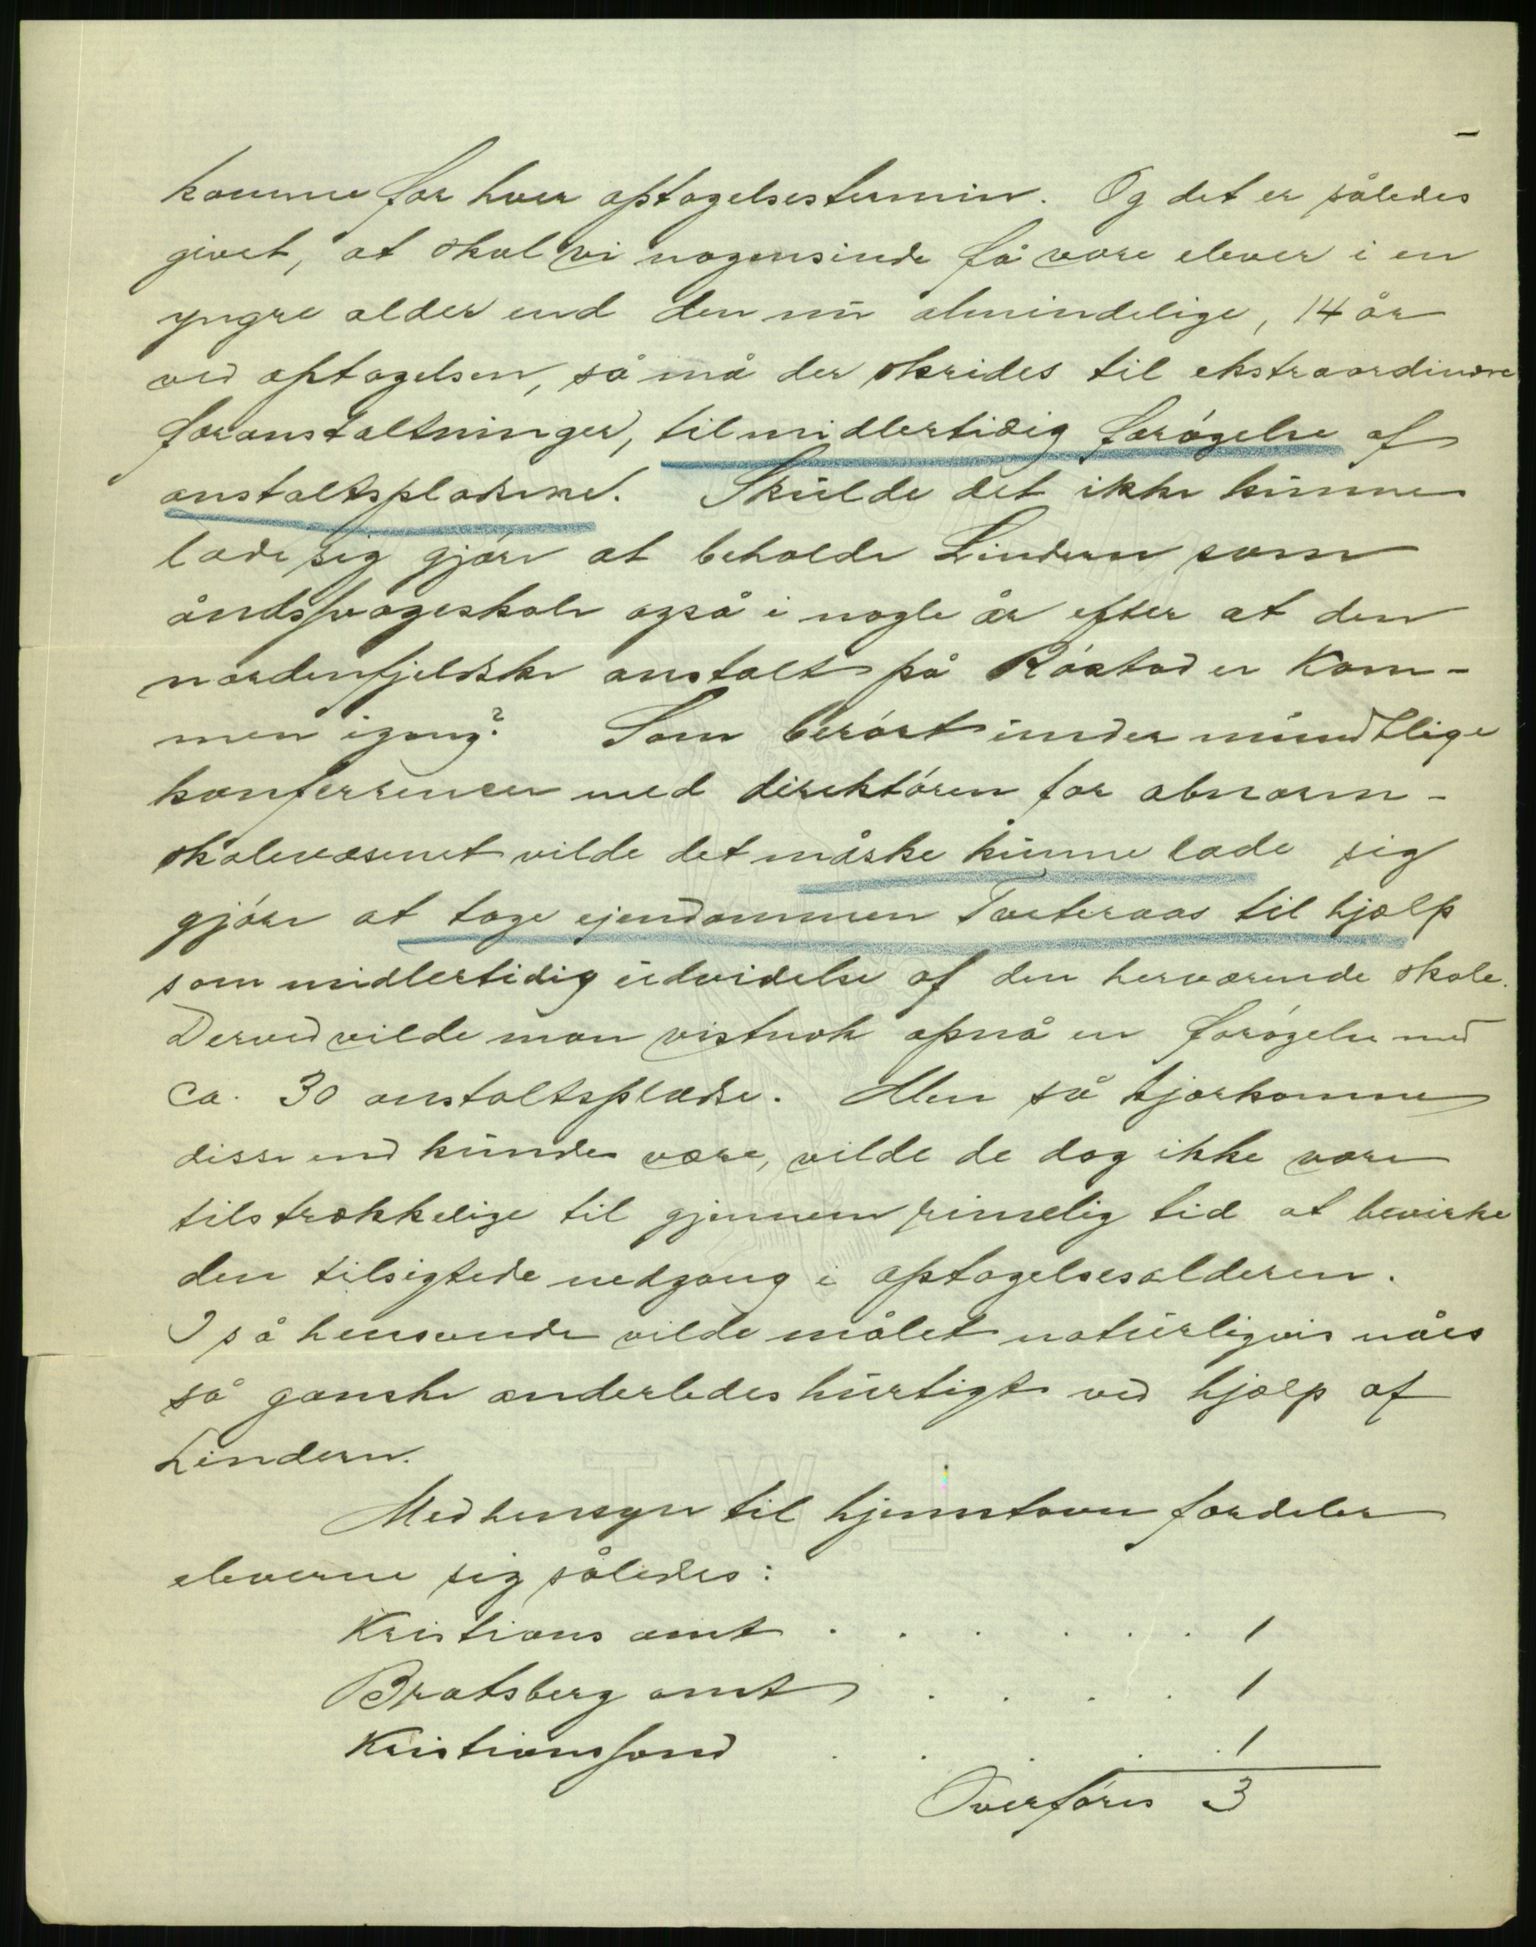 komme for hver optagelsestermin. Og det er således
givet, at skal vi nogensinde få vore elever i en
yngre alder end den nu almindelige, 14 år
ved optagelsen, så må der skrides til ekstraordinære
foranstaltninger, til midlertidig forøgelse af
anstaltspladsene. Skulde det ikke kunne
lade sig gjøre at beholde Lindern som
åndssvageskole også i nogle år efter at den
nordenfjeldske anstalt på Røstad er kom-
men igang? Som berørt under mundtlige
konferrencer med direktøren for abnorm-
skolevæsenet vilde det måske kunne lade sig
gjøre at tage ejendommen Tveteraas til hjælp
som midlertidig udvidelse af den herværende skole.
Derved vilde man vistnok opnå en forøgelse med
ca. 30 anstaltspladse. Men så kjærkomne
disse end kunde være, vilde de dog ikke være
tilstrækkelige til gjennem rimelig tid at bevirke
den tilsigtede nedgang i optagelsesalderen.
I så henseende vilde målet naturligvis nåes
så ganske anderledes hurtigt ved hjælp af
Lindern.
Med hensyn til hjemstavn fordeler
eleverne sig således:
Kristians amt . . . . . . 1
Bratsberg amt . . . . 1
Kristianssand . . . . . 1
Overføres 3